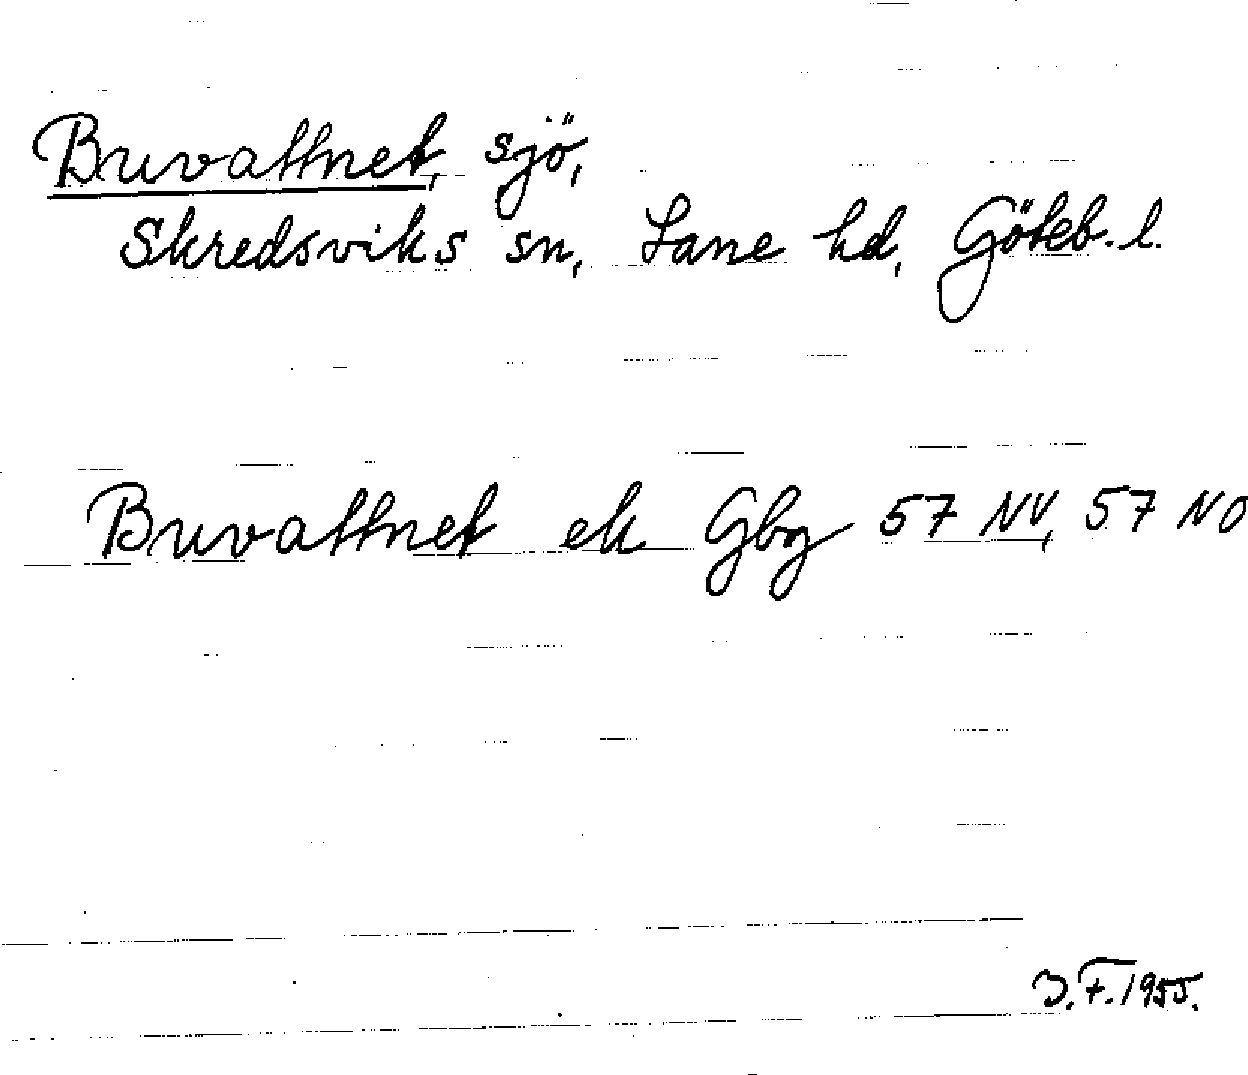 Buvattnet, sjö,
Skredsviks sn, Lane hd, Göteb. l.
Buvattnet ek Gbg 57 NV, 57 NO
J.F. 1955.